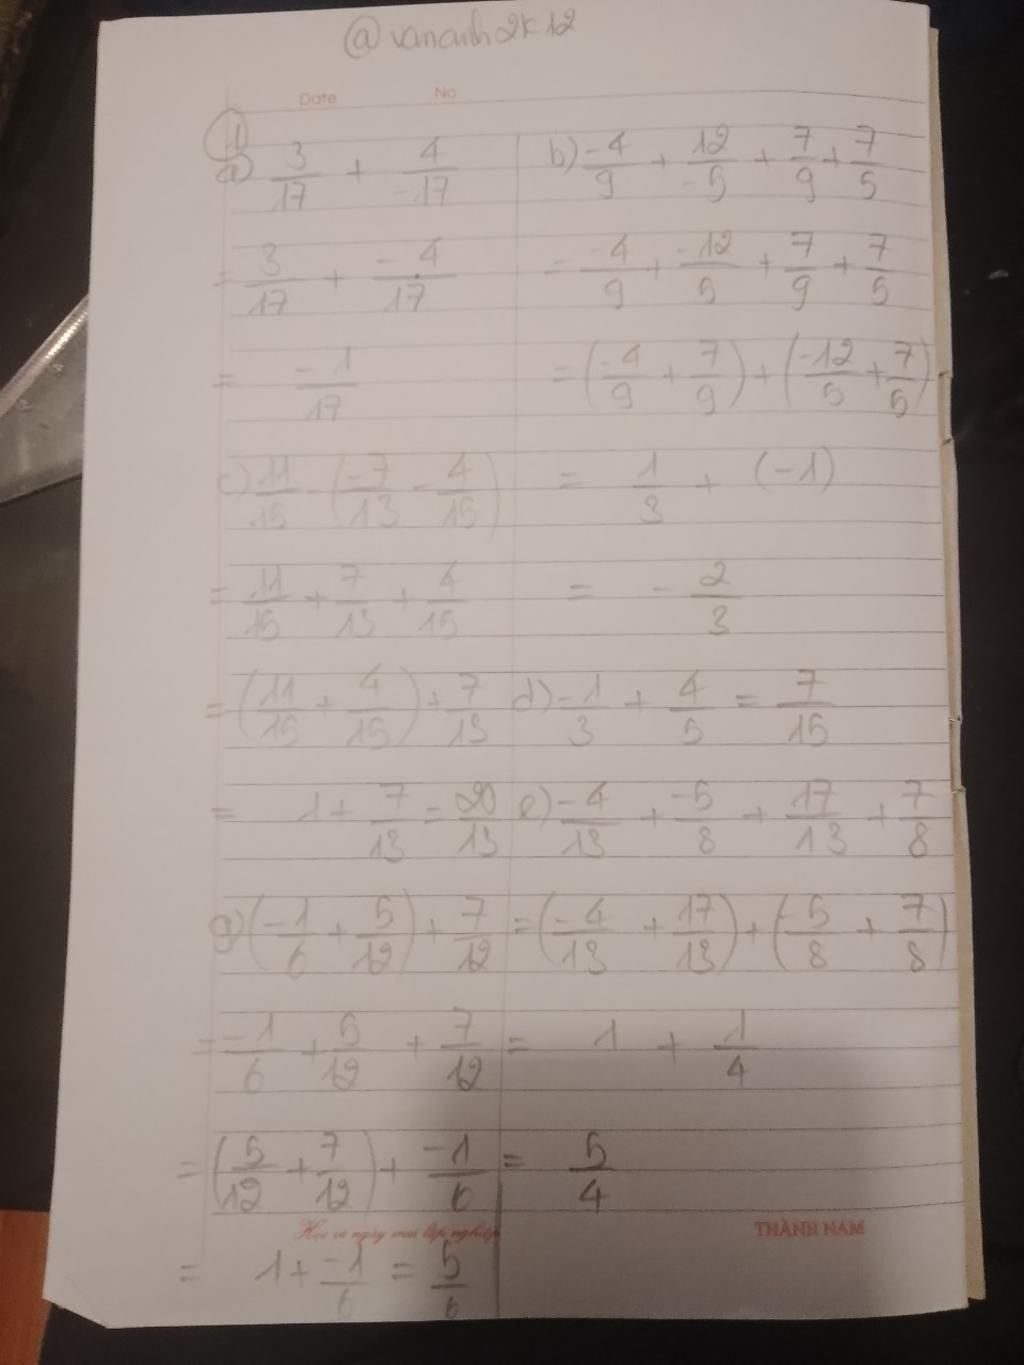 @vananh2k12
Date No
1
a) 3/17 + 4/-17
= 3/17 + -4/17
= -1/17
b) -4/9 + 12/-5 + 7/9 + 7/5
= -4/9 + -12/5 + 7/9 + 7/5
= (-4/9 + 7/9) + (-12/5 + 7/5)
= 1/3 + (-1)
= - 2/3
c) 11/15 - (-7/13 - 4/15)
= 11/15 + 7/13 + 4/15
= (11/15 + 4/15) + 7/13
= 1 + 7/13 = 20/13
d) -1/3 + 4/5 = 7/15
e) -4/13 + -5/8 + 17/13 + 7/8
= (-4/13 + 17/13) + (-5/8 + 7/8)
= 1 + 1/4
= 5/4
g) (-1/6 + 5/12) + 7/12
= -1/6 + 5/12 + 7/12
= (5/12 + 7/12) + -1/6
= 1 + -1/6 = 5/6
Học vì ngày mai lập nghiệp
THÀNH NAM